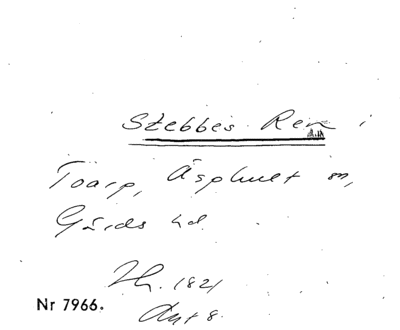 Stebbes Ren i
Toarp, Äsphult sn,
Gärds hd.
Th. 1821
Ant 8.
Nr 7966.